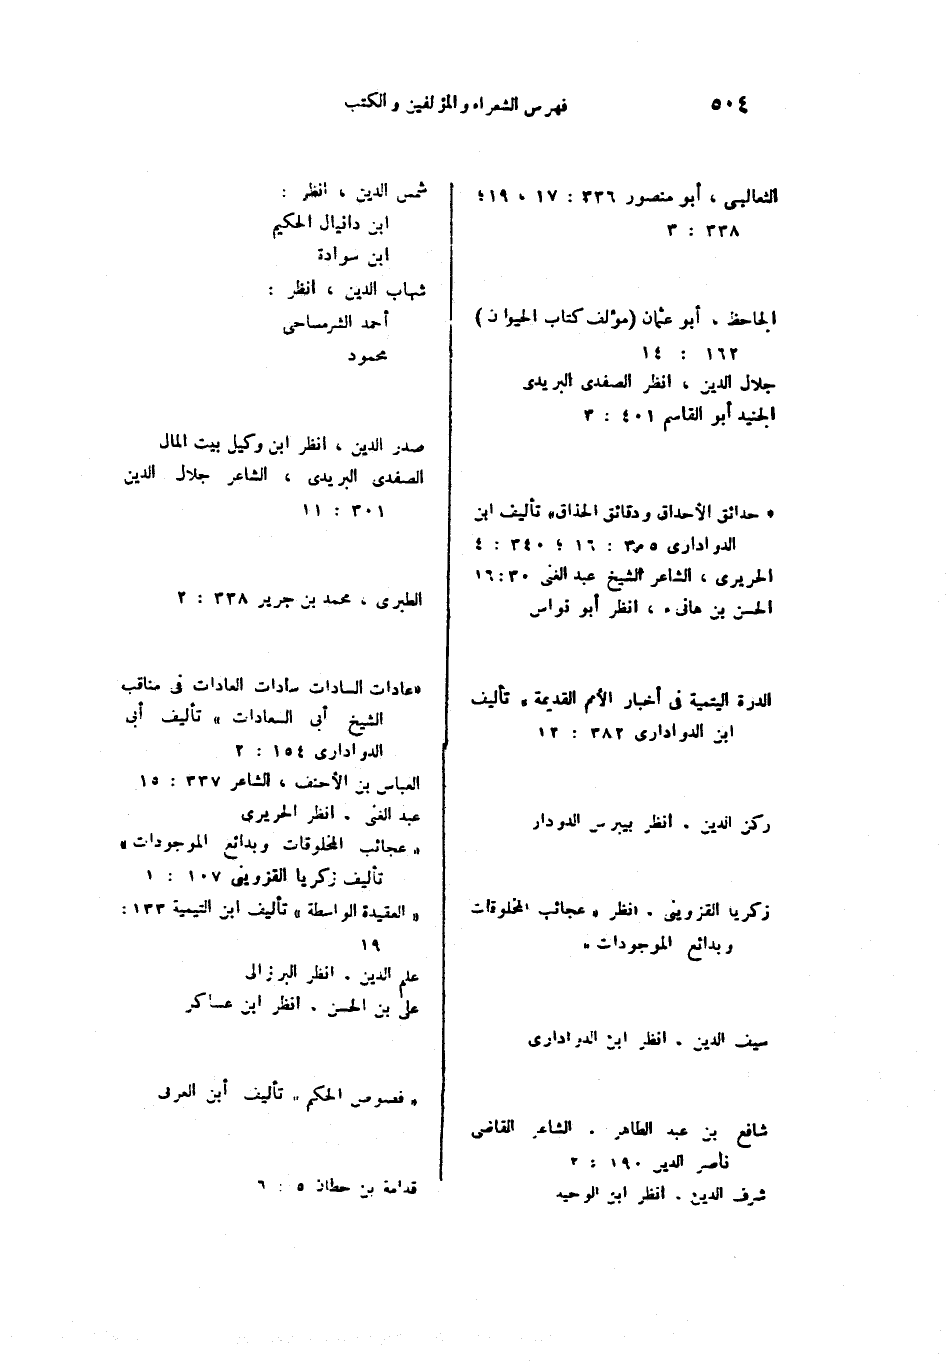 ٥٠٤
فهرس الشعراء والمؤلفين والكتب
الثعالبى ، أبو منصور ٣٣٦ : ١٧ ، ١٩ ؛
٣٣٨ : ٣
الجاحظ ، أبو عثمان (مؤلف كتاب الحيوان)
١٦٢ : ١٤
جلال الدين ، انظر الصفدى البريدى
الجنيد أبو القاسم ٤٠١ : ٣
« حدائق الأحداق ودقائق الحذاق» تأليف ابن
الدوادارى : ١٦ ؛ ٣٤٠ : ٤
الحريرى ، الشاعر الشيخ عبد الغنى ٣٠ : ١٦
الحسن بن هانىء ، انظر أبو نواس
الدرة اليتيمة فى أخبار الأمم القديمة » تأليف
ابن الدوادارى ٣٨٢ : ١٢
ركن الدين . انظر بيبرس الدودار
زكريا القزوينى . انظر « عجائب المخلوقات
وبدائع الموجودات »
سيف الدين . انظر ابن الدوادارى
شافع بن عبد الطاهر . الشاعر القاضى
ناصر الدين ١٩٠ : ٢
شرف الدين . انظر ابن الوحيد
شمس الدين ، انظر :
ابن دانيال الحكيم
ابن سوادة
شهاب الدين ، انظر :
أحمد الشرمساحى
محمود
صدر الدين ، انظر ابن وكيل بيت المال
الصفدى البريدى ، الشاعر جلال الدين
٣٠١ : ١١
الطبرى ، محمد بن جرير ٣٣٨ : ٢
«عادات السادات سادات العادات فى مناقب
الشيخ أبى السعادات » تأليف أبى
الدوادارى ١٥٤ : ٢
العباس بن الأحنف ، الشاعر ٣٣٧ : ١٥
عبد الغنى . انظر الحريرى
« عجائب المخلوقات وبدائع الموجودات »
تأليف زكريا القزوينى ١٠٧ : ١
« العقيدة الواسطة » تأليف ابن التيمية ١٣٣ :
١٩
علم الدين . انظر البرزالى
على بن الحسن . انظر ابن عساكر
« فصوص الحكم » تأليف أبن العربى
قدامة بن حطان ٥ : ٦